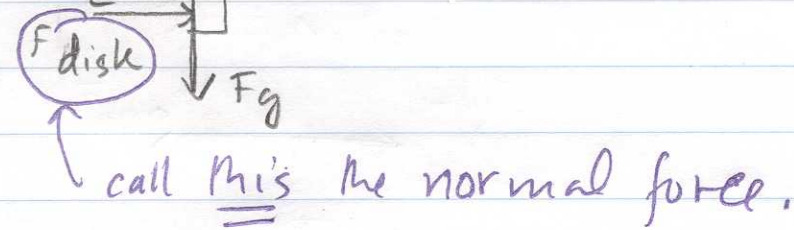 F disk
Fg
call this the normal force.